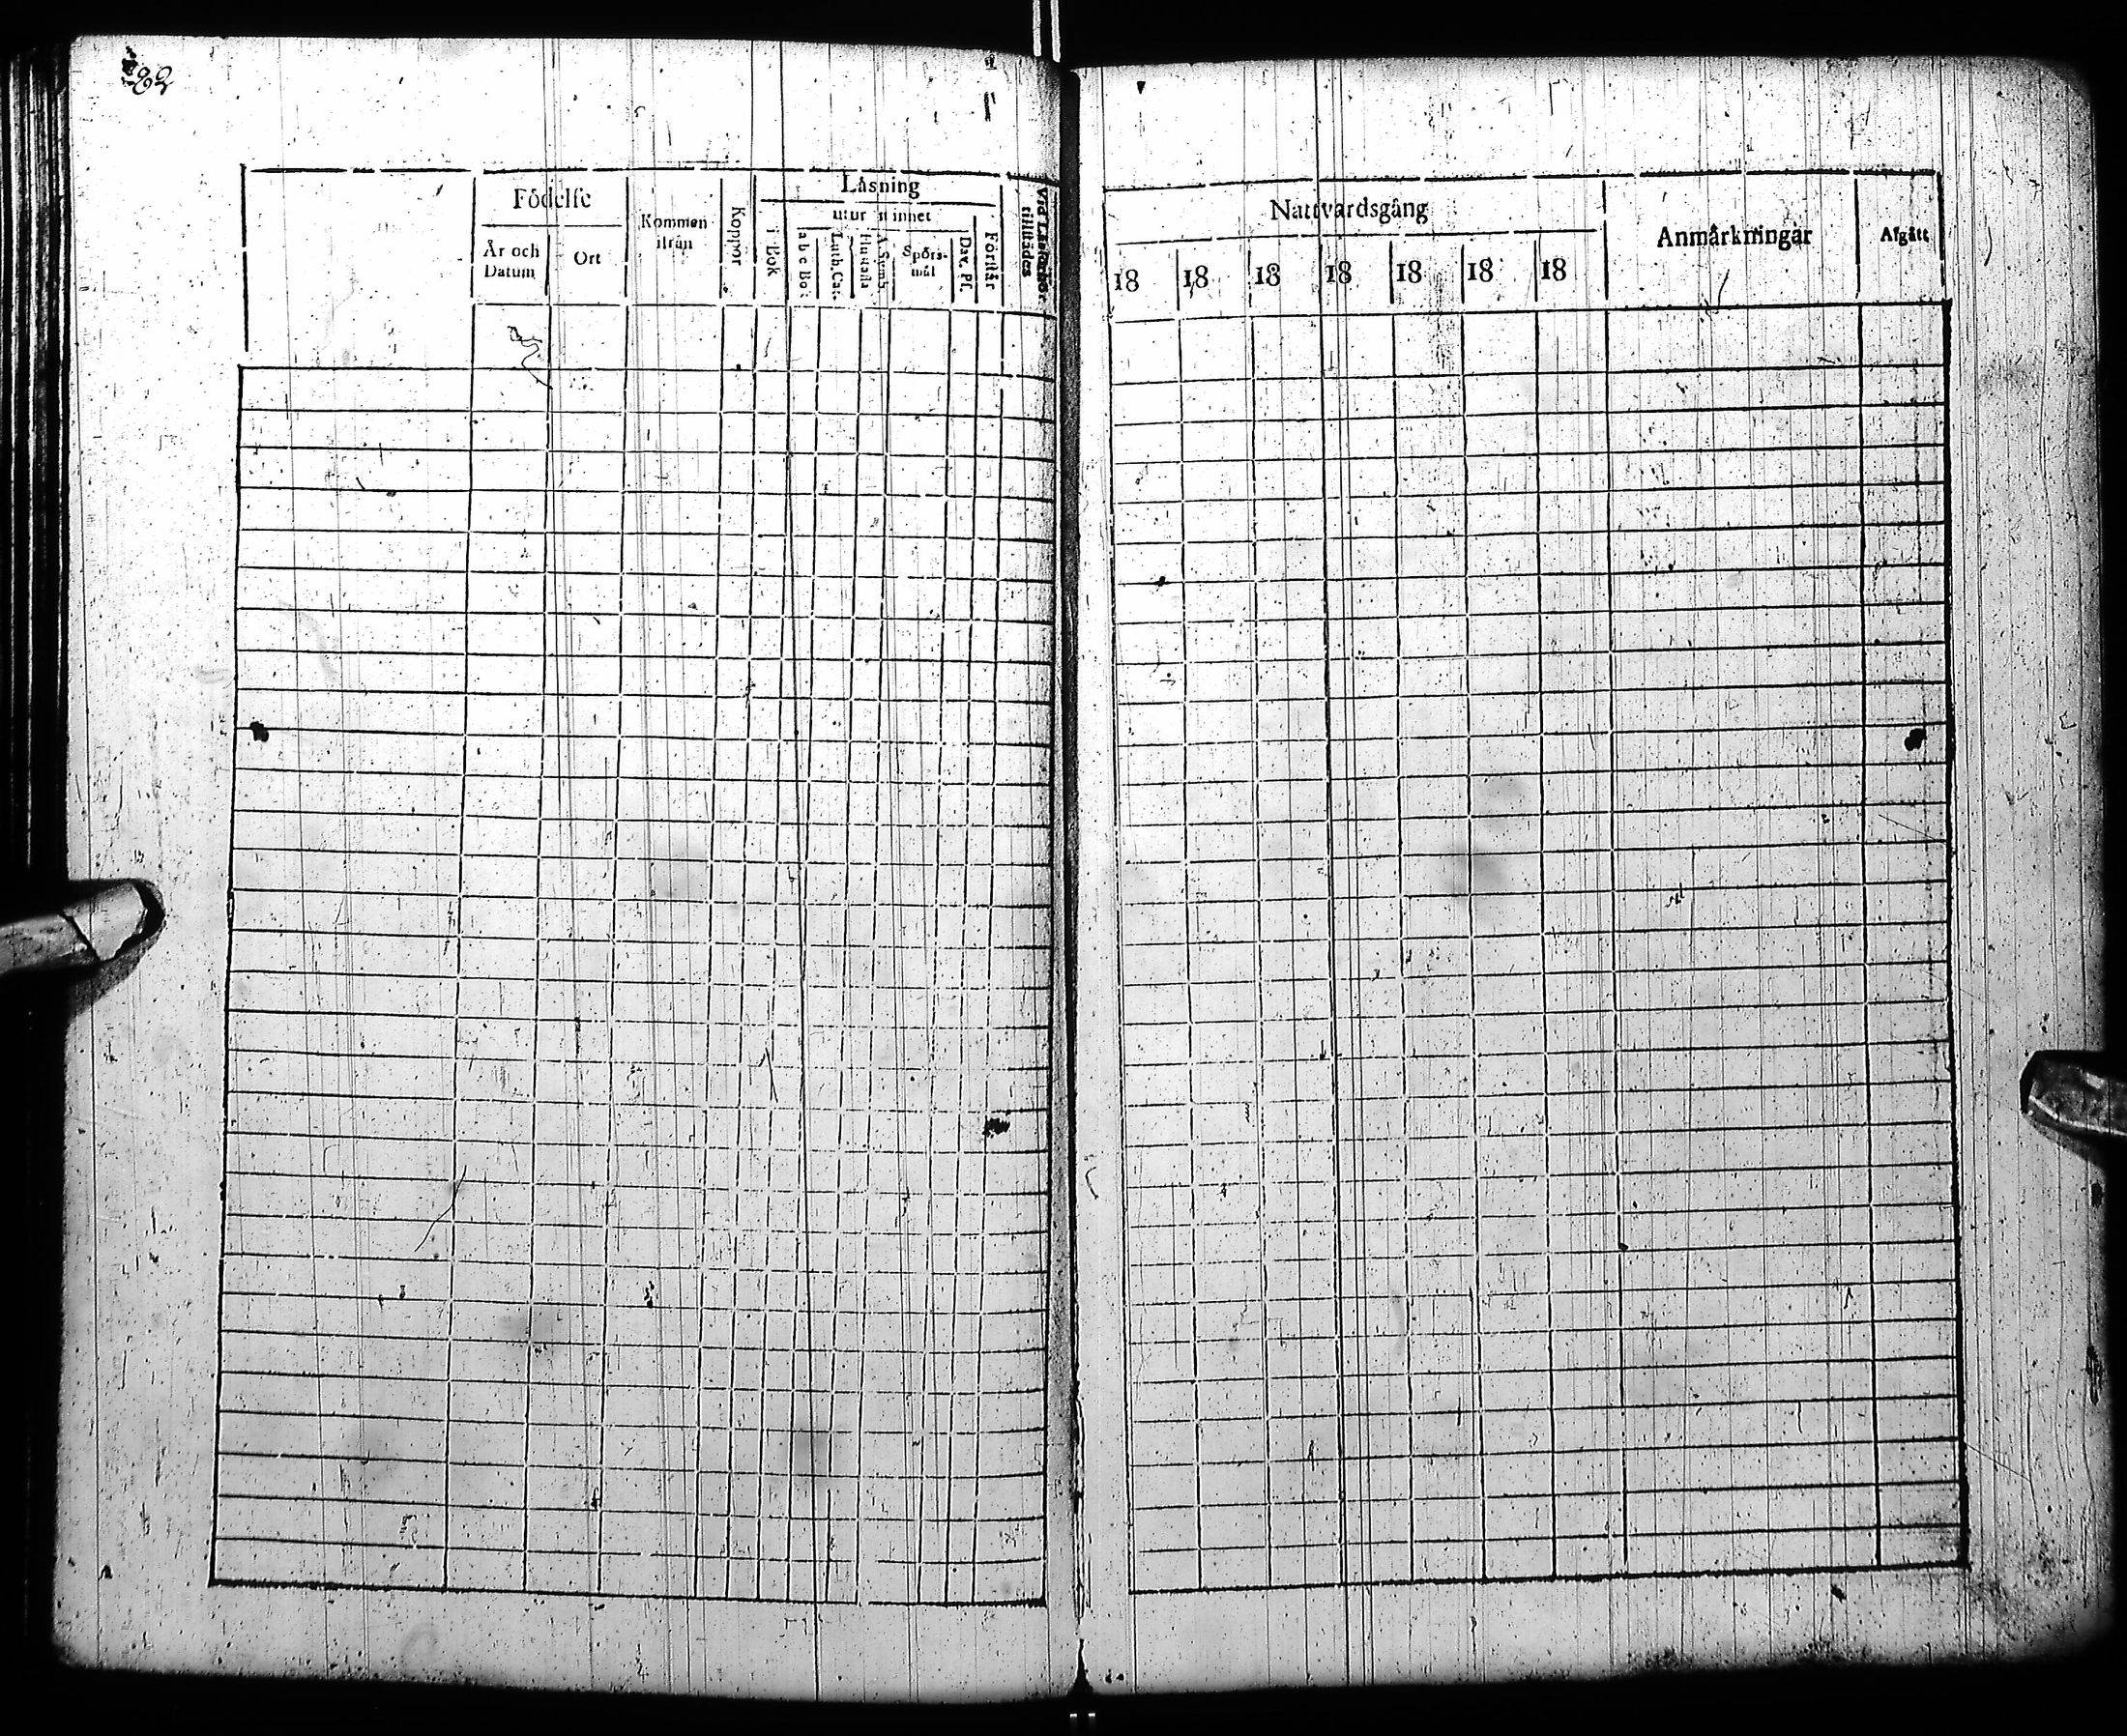 82
Födelse
År och Datum
Ort
Kommen ifrån
Koppor
Läsning
i Bok
utur minnet
a b c Bok
Luth. Cat.
Hustafla
A. Symb.
Spörs-
mål
Dav. Ps.
Förstår
tillstädes
Nattvardsgång
18 18 18 18 18 18 18
Anmärkningar
Afgått